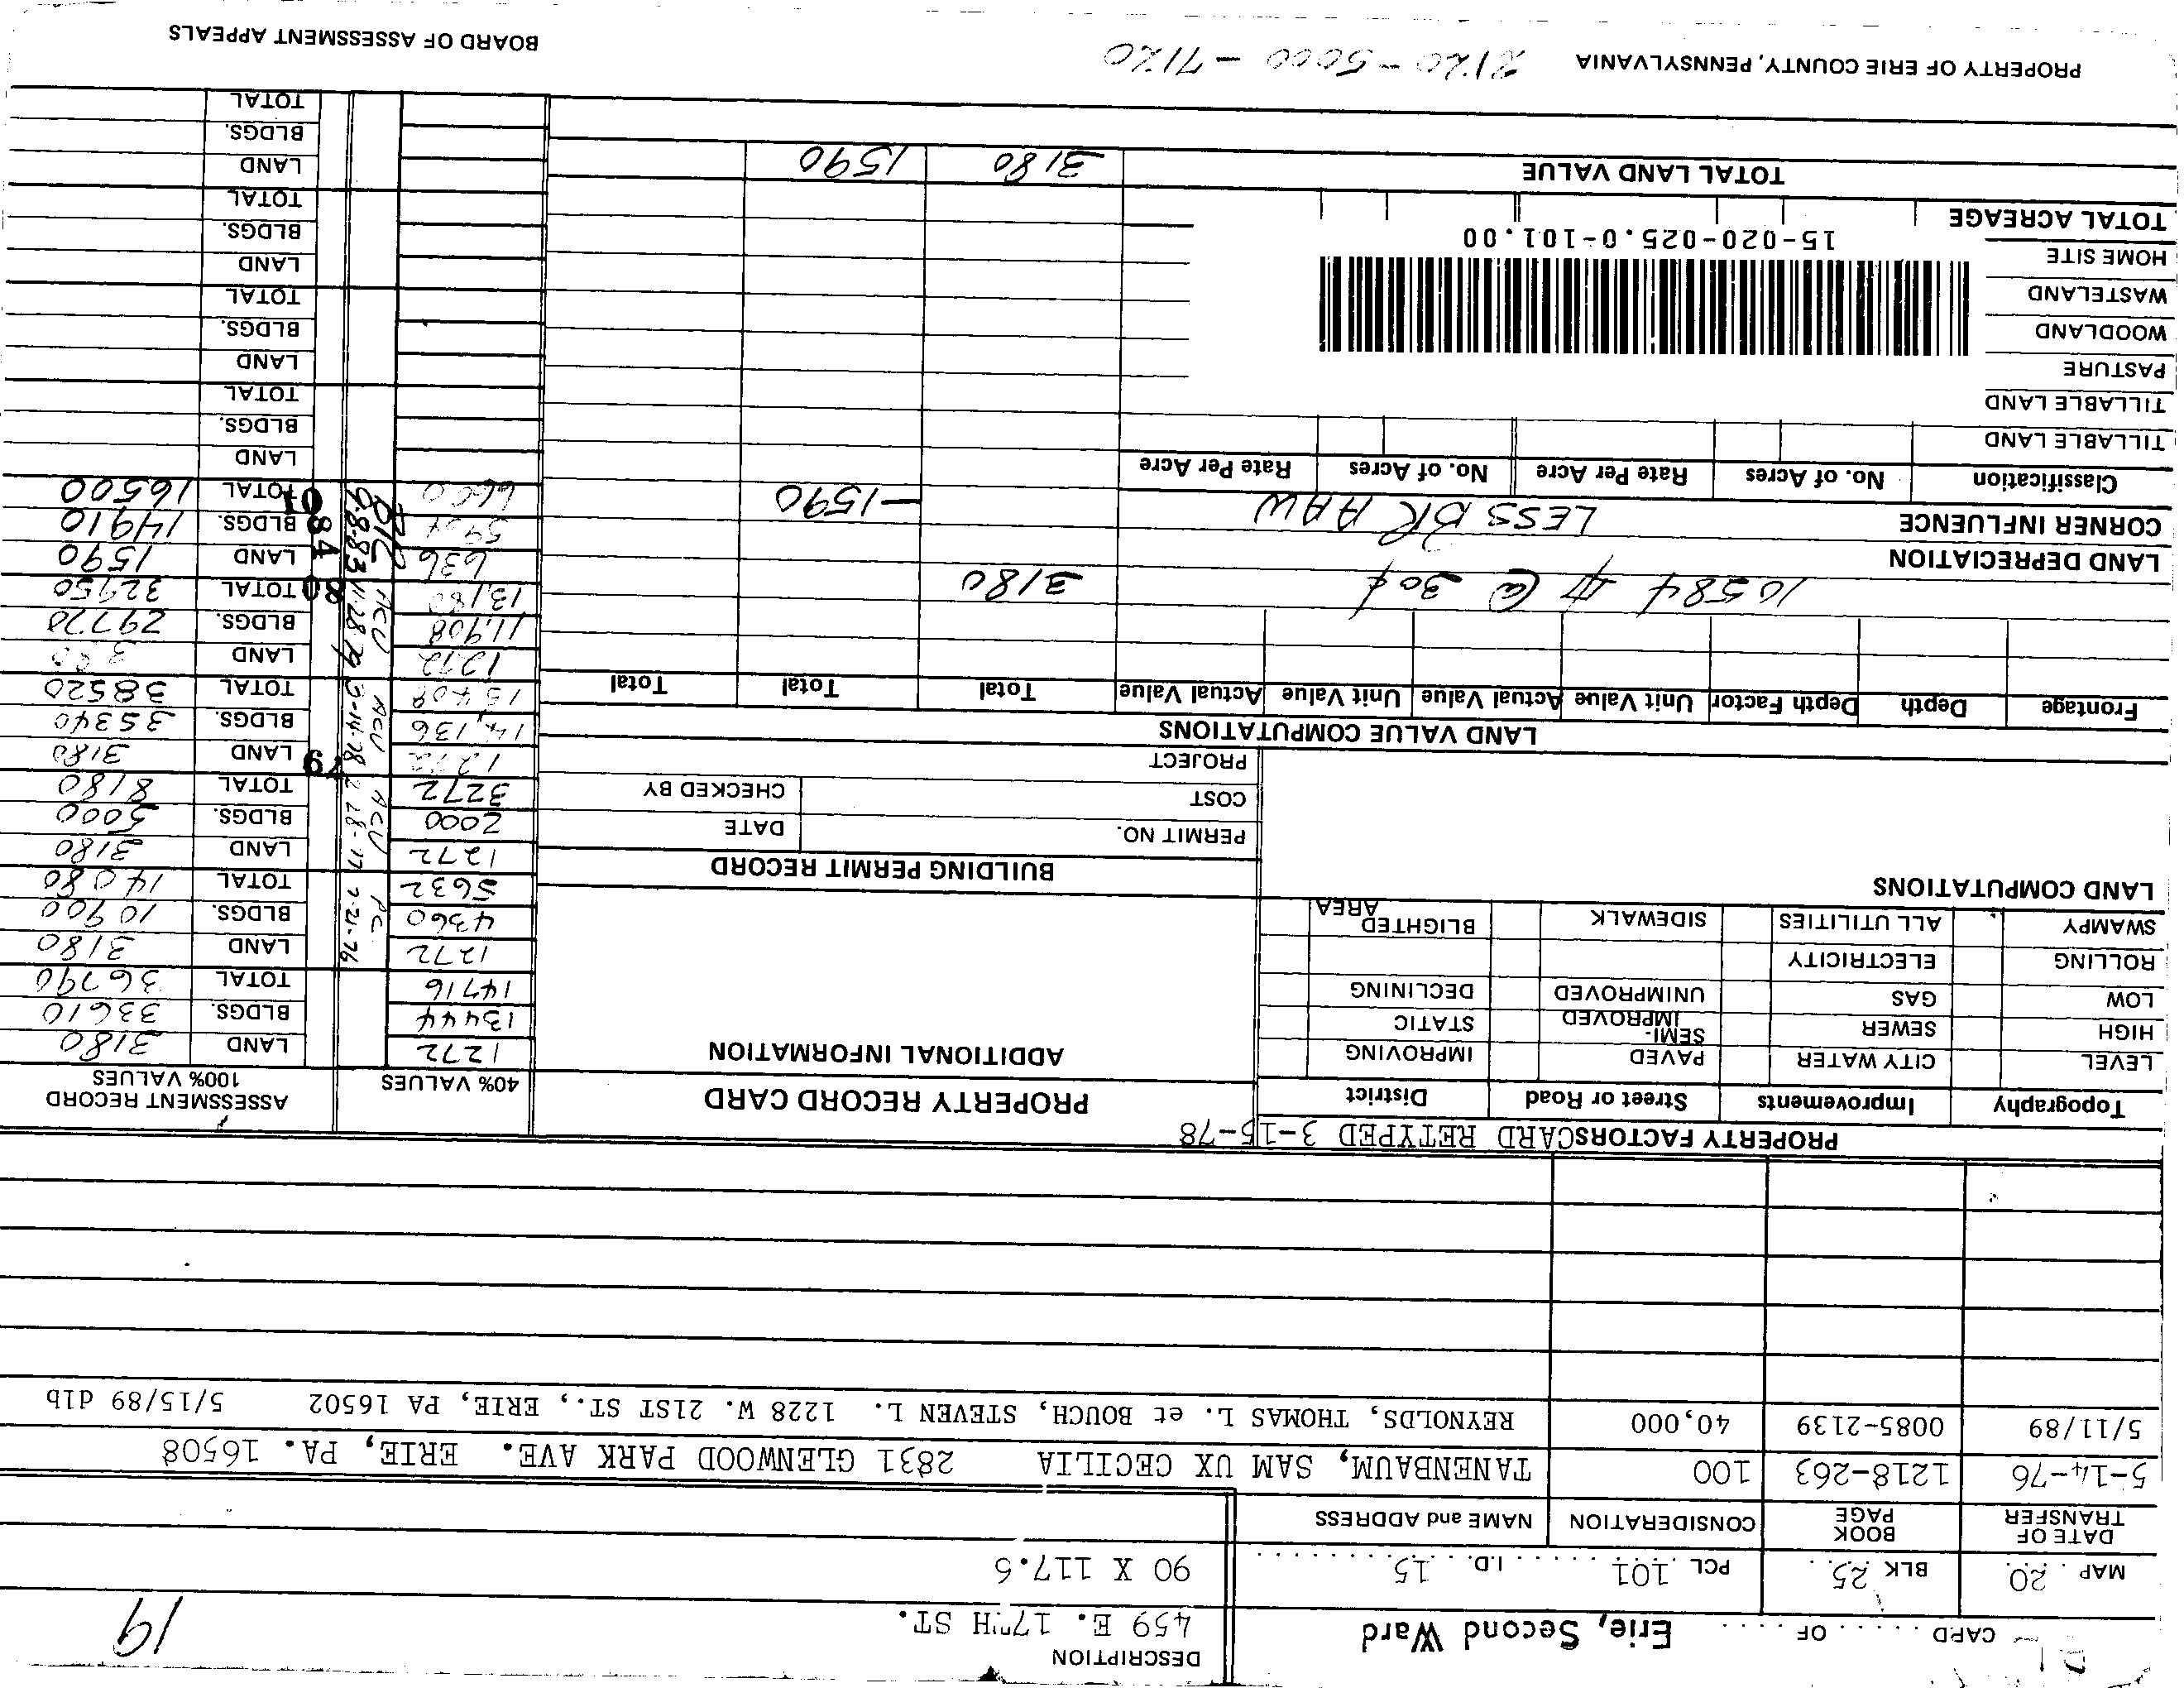 CARD ...... OF ......
Erie, Second Ward
DESCRIPTION
459 E. 17TH ST.
19
MAP 20 BLK 25 PCL 101 I.D. 15
90 X 117.6
DATE OF TRANSFER BOOK PAGE CONSIDERATION NAME and ADDRESS
5-14-76 1218-263 100 TANENBAUM, SAM UX CECILIA 2831 GLENWOOD PARK AVE. ERIE, PA. 16508
5/11/89 0085-2139 40,000 REYNOLDS, THOMAS L. et BOUCH, STEVEN L. 1228 W. 21ST ST., ERIE, PA 16502 5/15/89 dlb
PROPERTY FACTORS CARD RETYPED 3-15-78
Topography Improvements Street or Road District
LEVEL CITY WATER PAVED IMPROVING
HIGH SEWER SEMI-IMPROVED STATIC
LOW GAS UNIMPROVED DECLINING
ROLLING ELECTRICITY
SWAMPY ALL UTILITIES SIDEWALK BLIGHTED AREA
LAND COMPUTATIONS
PROPERTY RECORD CARD
ADDITIONAL INFORMATION
BUILDING PERMIT RECORD
PERMIT NO. DATE
COST CHECKED BY
PROJECT
40% VALUES ASSESSMENT RECORD 100% VALUES
1272 LAND 3180
13444 BLDGS. 33610
14716 TOTAL 36790
1272 7-21-76 LAND 3180
4360 PC BLDGS. 10900
5632 TOTAL 14080
1272 2-28-77 LAND 3180
2000 ACU BLDGS. 5000
3272 TOTAL 8180
1,272 3-14-78 79 LAND 3180
14,136 ACU BLDGS. 35340
15408 TOTAL 38520
1272 11-28-79 LAND
11,908 ACU BLDGS. 29770
13,180 80 TOTAL 32950
636 8-8-83 84 LAND 1590
BLDGS. 14910
6600 01 TOTAL 16500
LAND
BLDGS.
TOTAL
LAND
BLDGS.
TOTAL
LAND
BLDGS.
TOTAL
LAND
BLDGS.
TOTAL
LAND VALUE COMPUTATIONS
Frontage Depth Depth Factor Unit Value Actual Value Unit Value Actual Value Total Total Total
10584 # @ 30¢ 3180
LAND DEPRECIATION
CORNER INFLUENCE LESS BR AAW -1590
Classification No. of Acres Rate Per Acre No. of Acres Rate Per Acre
TILLABLE LAND
TILLABLE LAND
PASTURE
WOODLAND
WASTELAND
HOME SITE
15-020-025.0-101.00
TOTAL ACREAGE
TOTAL LAND VALUE 3180 1590
PROPERTY OF ERIE COUNTY, PENNSYLVANIA 2120-5000-7120 BOARD OF ASSESSMENT APPEALS